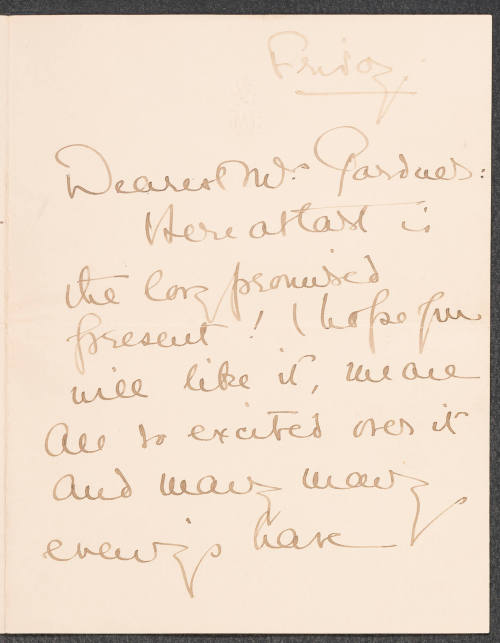 Friday.
Dearest Mrs Gardner:
Here at last is
the long promised
present! I hope you
will like it, we are
all so excited over it
and many many
evenings have